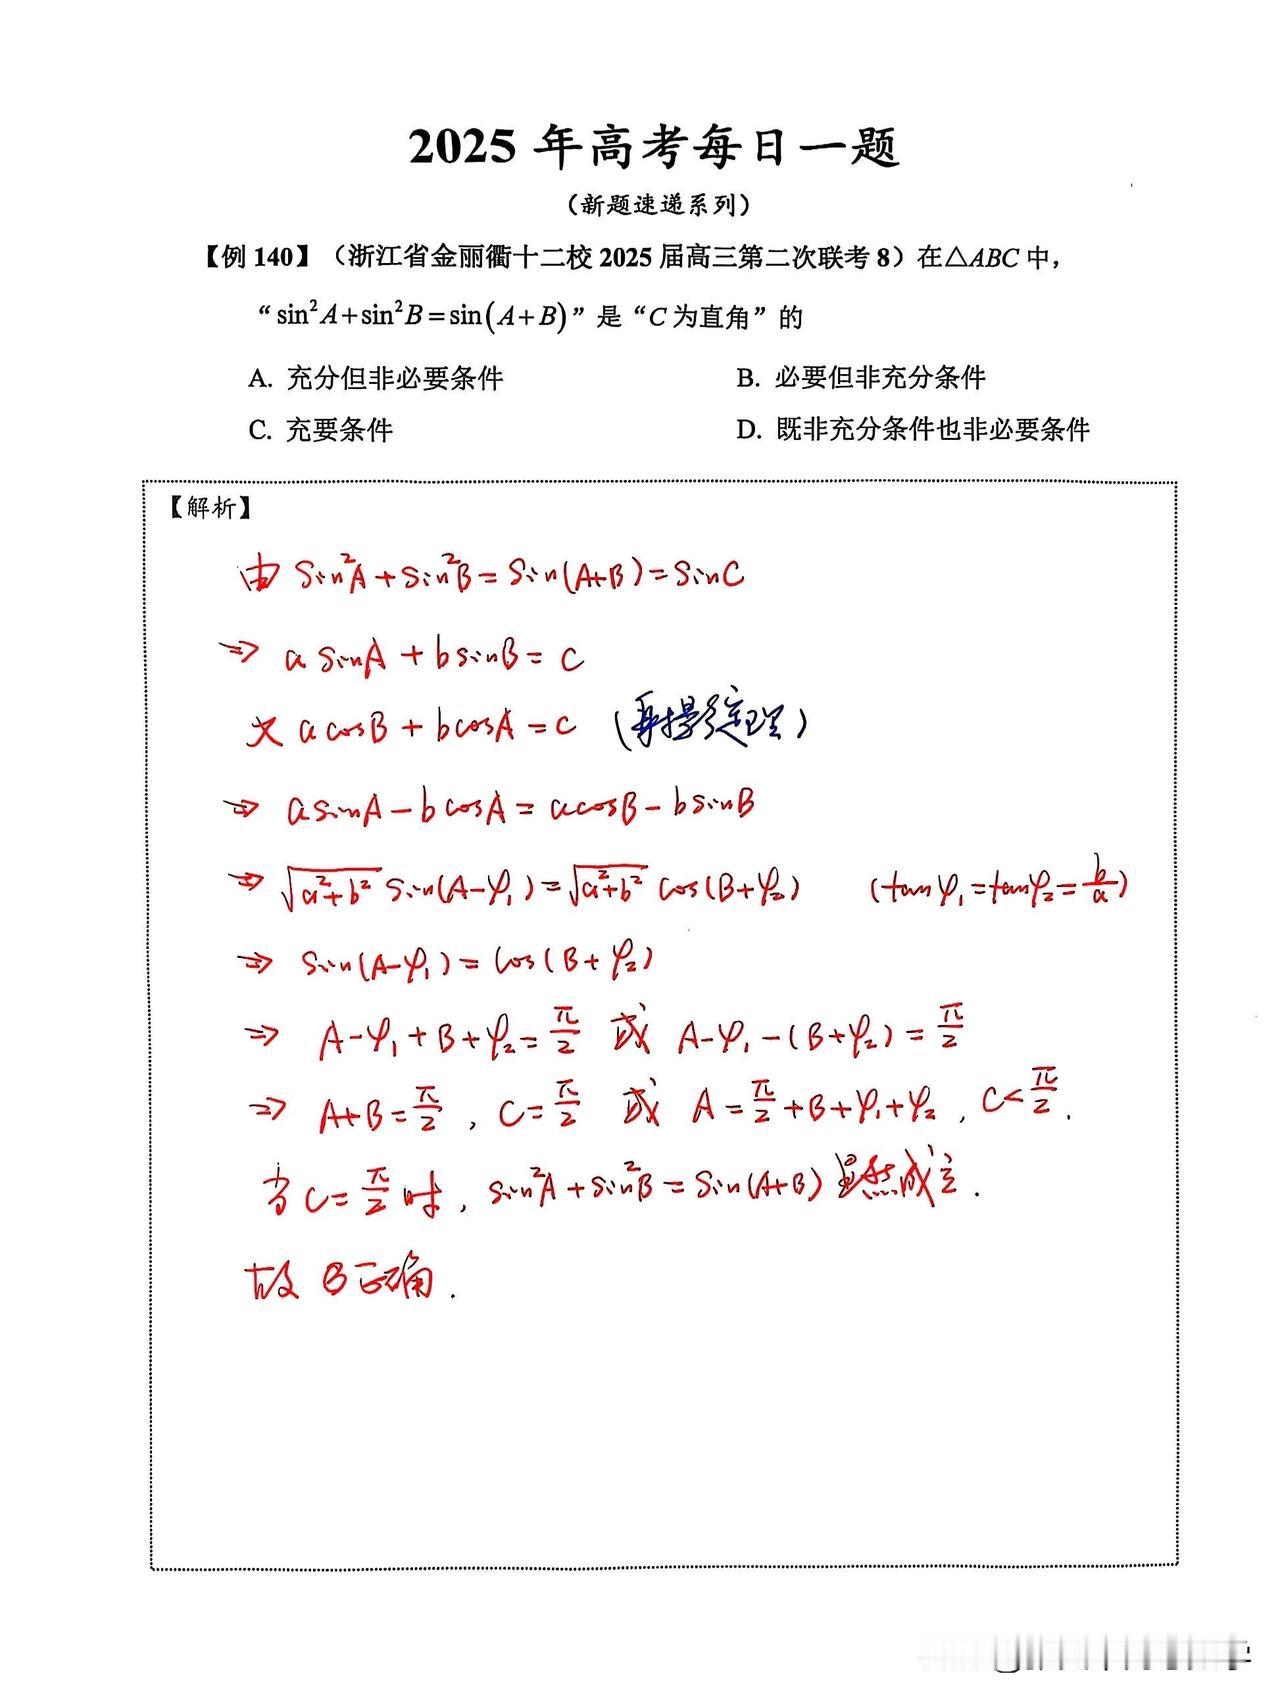 2025 年高考每日一题
（新题速递系列）
【例 140】（浙江省金丽衢十二校 2025 届高三第二次联考 8）在△ABC 中，
“sin²A+sin²B=sin(A+B)”是“C 为直角”的
A. 充分但非必要条件 B. 必要但非充分条件
C. 充要条件 D. 既非充分条件也非必要条件
【解析】
由 sin²A+sin²B=sin(A+B)=sinC
⇒ a sinA + b sinB = c
又 a cosB + b cosA = c （射影定理）
⇒ a sinA − b cosA = a cosB − b sinB
⇒ √(a²+b²) sin(A−φ₁)=√(a²+b²) cos(B+φ₂) (tanφ₁=tanφ₂=b/a)
⇒ sin(A−φ₁)=cos(B+φ₂)
⇒ A−φ₁+B+φ₂=π/2 或 A−φ₁−(B+φ₂)=π/2
⇒ A+B=π/2，C=π/2 或 A=π/2+B+φ₁+φ₂，C<π/2.
当 C=π/2 时，sin²A+sin²B=sin(A+B) 显然成立.
故 B 正确.